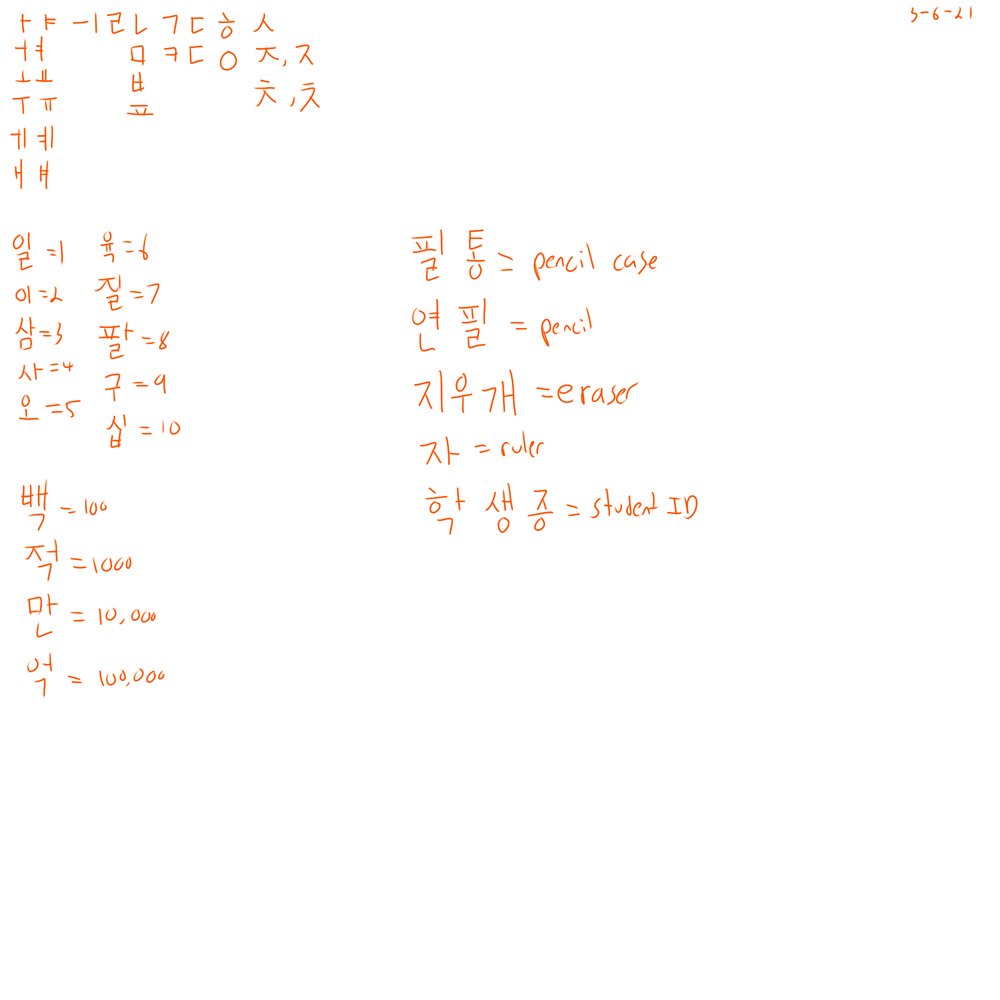 3-6-21
ㅏ ㅑ ㅡ ㅣ ㄹ ㄴ ㄱ ㄷ ㅎ ㅅ
ㅓ ㅕ ㅁ ㅋ ㄷ ㅇ ㅈ, ㅈ
ㅗ ㅛ ㅂ ㅊ, ㅊ
ㅜ ㅠ ㅍ
ㅔ ㅖ
ㅐ ㅒ
일 =1 육 =6
이 =2 질 =7
삼 =3 팔 =8
사 =4 구 = 9
오 =5 십 = 10
백 = 100
적 = 1000
만 = 10,000
억 = 100,000
필통 = pencil case
연필 = pencil
지우개 = eraser
자 = ruler
학생증 = student ID